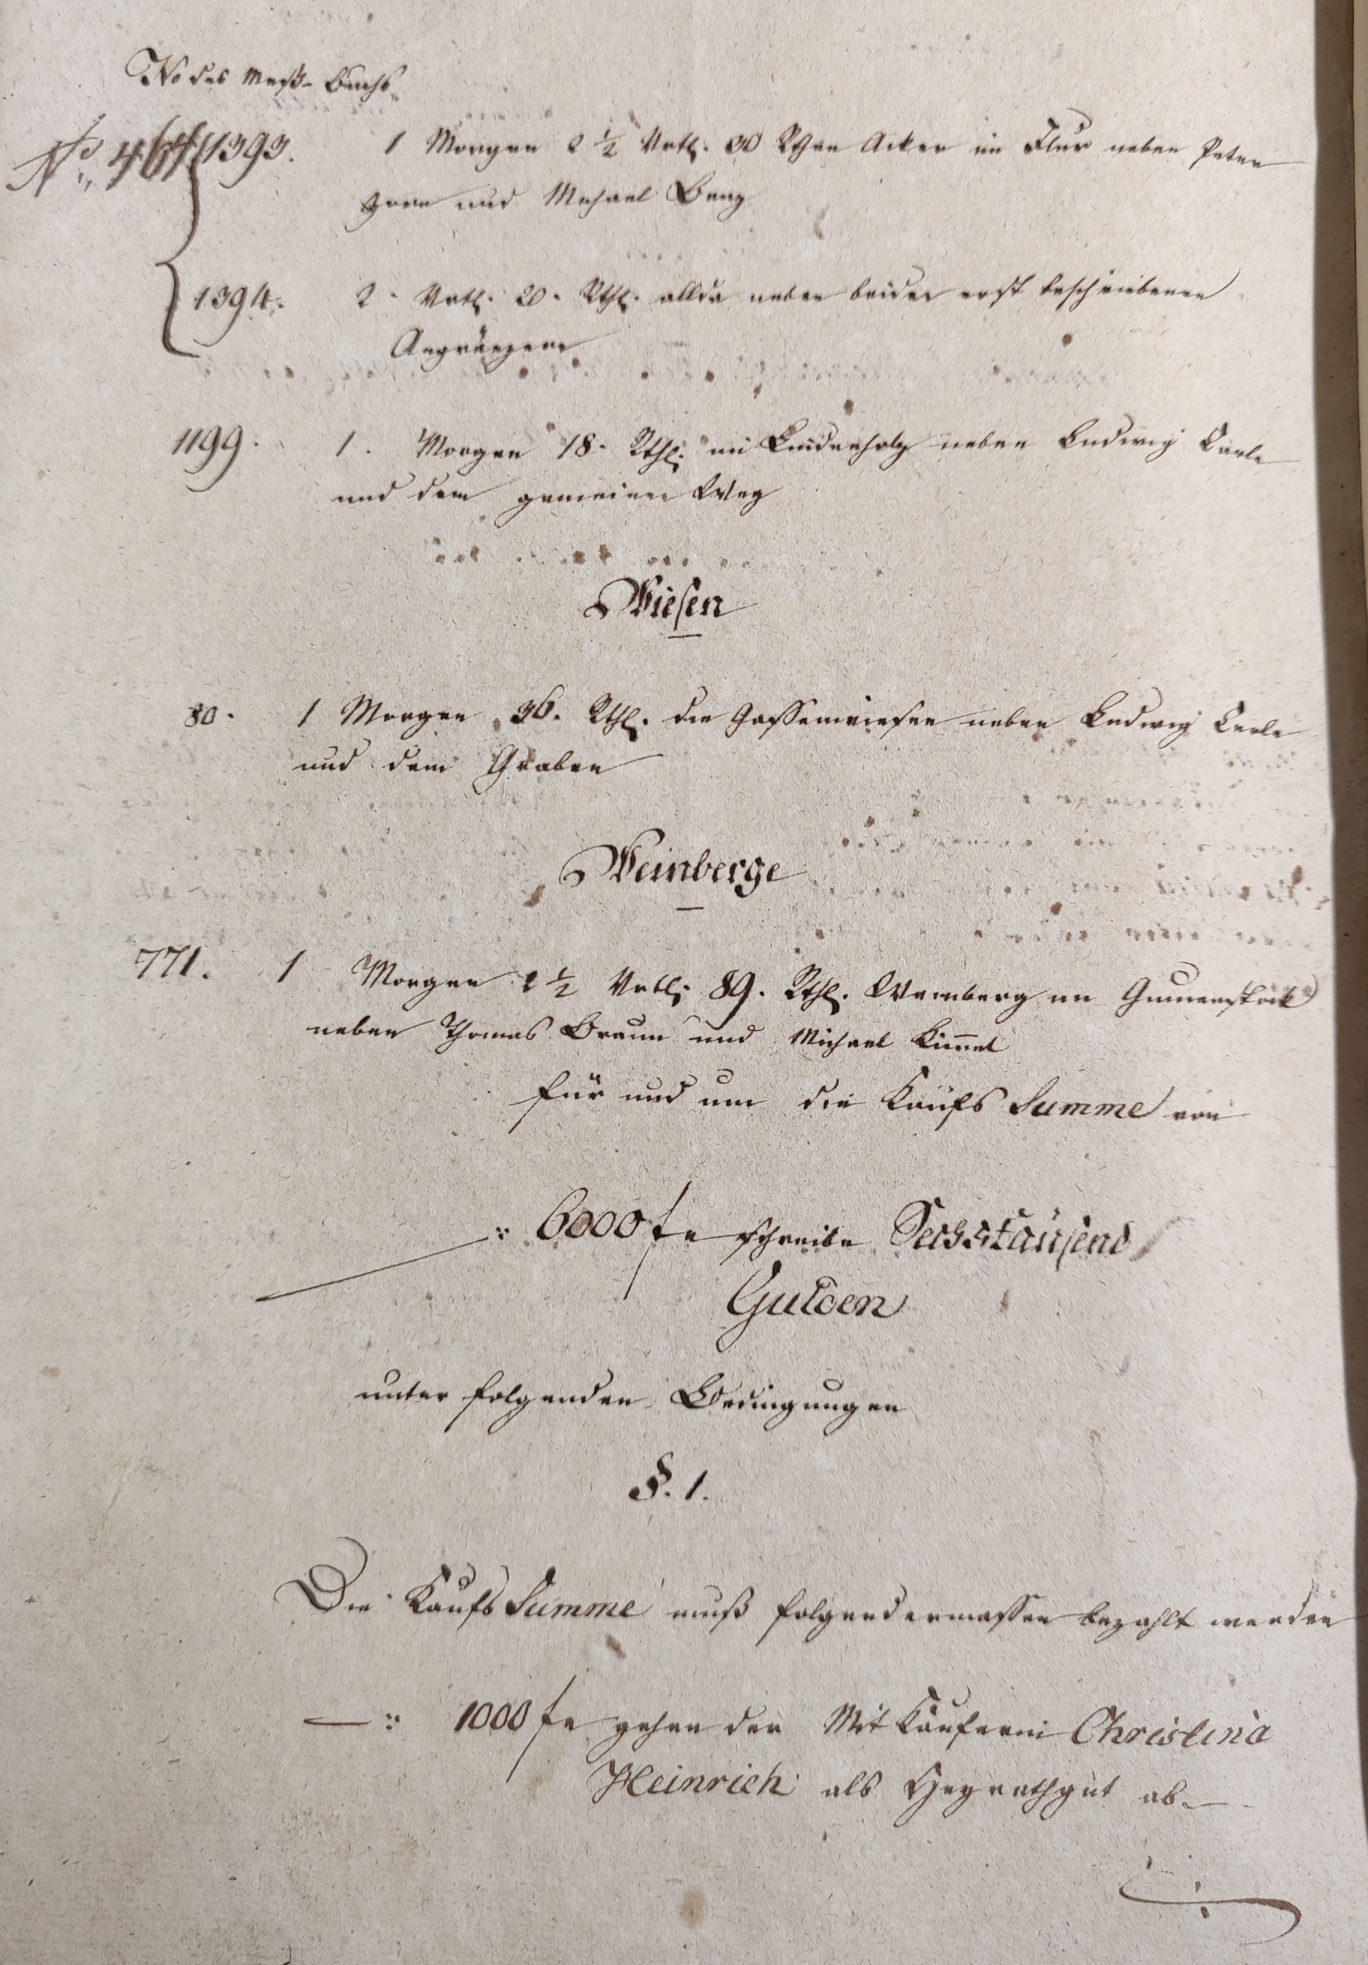 No des Meß- Buchs
No 464 1393. 1 Morgen 2 ½ Vrtl. 30 Rthen Acker im Flur neben Peter
Horn und Michael Benz
1394. 2. Vrtl. 20. Rthl. allda neben beider erst beschriebenen
Angränzern
1199. 1. Morgen 18. Rthl. im Lindenholz neben Ludwig Carle
und dem gemeinen Weg
Wiesen
80. 1 Morgen 36. Rthl. die Gassenwiesen neben Ludwig Carle
und dem Graben
Weinberge
771. 1 Morgen 2 ½ Vrtl. 89. Rthl. Weinberg im
neben Thomas Braun und Michael Kim̄el
für und um die Kaufs Summe von
6000 f schreibe Sechstausend
Gulden
unter folgenden Bedingungen
§. 1.
Die Kaufs Summe muß folgendermassen bezahlt werden
1000 f gehen der Mit Käuferin Christina
Heinrich als Heyrathgut ab.